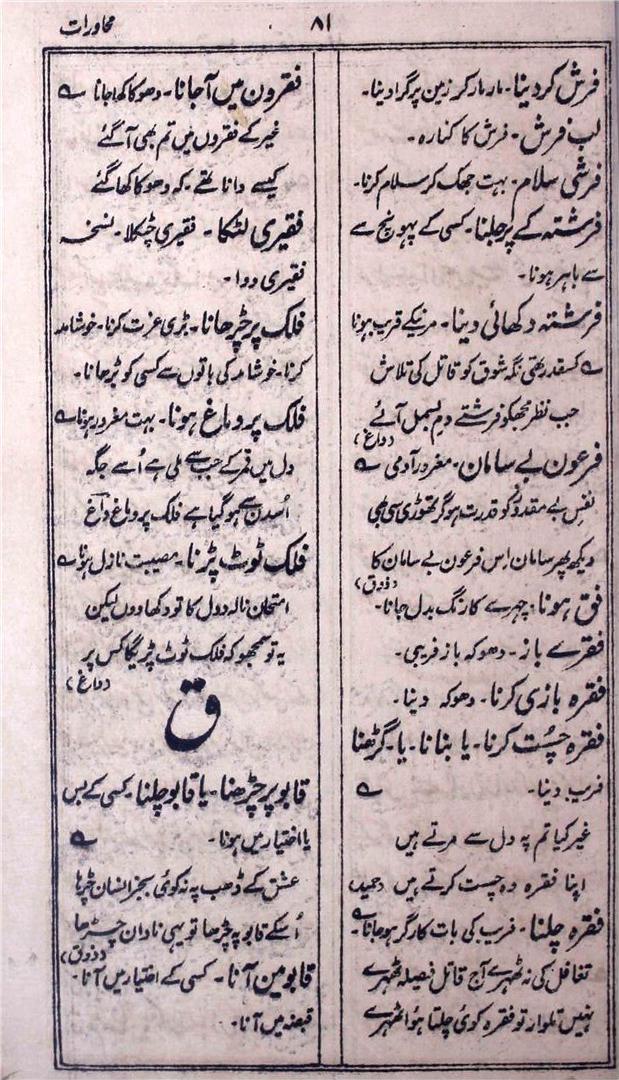 محاورات
۸۱
فرش کر دینا۔ مار مار کر زمین پر گرا دینا۔
لب فرش۔ فرش کا کنارہ۔
فرشی سلام۔ بہت جھک کر سلام کرنا۔
فرشتہ کے پر جلنا۔ کسی کے پہونچ سے
سے باہر ہونا۔
فرشتہ دکھائی دینا۔ مرنیکے قریب ہونا
ے کسقدر تھی نگہ شوق کو قاتل کی تلاش
جب نظر مجھکو فرشتے دم بسمل آئے
(داغ)
فرعون بے سامان۔ مغرور آدمی ے
نفس بے مقدور کو قدرت ہو گر تھوڑی سی بھی
دیکھ پھر سامان اس فرعون بے سامان کا
(ذوق)
فق ہونا۔ چہرے کا رنگ بدل جانا۔
فقرے باز۔ دھوکہ باز فریبی۔
فقرہ بازی کرنا۔ دھوکہ دینا۔
فقرہ چست کرنا۔ یا بنانا۔ یا۔ گڑھنا
فریب دینا۔ ے
غیر کیا تم پہ دل سے مرتے ہیں
اپنا فقرہ وہ چست کرتے ہیں (حمید)
فقرہ چلنا۔ فریب کی بات کارگر ہو جانا۔ ے
تغافل کی نہ ٹھہرے آج قاتل فیصلہ ٹھہرے
نہیں تلوار تو فقرہ کوئی چلتا ہوا ٹھہرے
فقرون میں آجانا۔ دھوکا کھا جانا ے
غیر کے فقروں میں تم بھی آ گئے
کیسے دانا تھے۔ کہ دھوکا کھا گئے
فقیری لٹکا۔ فقیری چٹکلا۔ نسخہ
فقیری دوا۔
فلک پر چڑھانا۔ بڑی عزت کرنا۔ خوشامد
کرنا۔ خوشامد کی باتوں سے کسی کو بڑھانا۔
فلک پر دماغ ہونا۔ بہت مغرور ہونا ے
دل میں قمر کے جب سے ملی ہے اُسے جگہ
اُسدن سے ہو گیا ہے فلک پر دماغ داغ
فلک ٹوٹ پڑنا۔ مصیبت نازل ہونا ے
امتحان نالہ و دل کا تو دکھا دوں لیکن
یہ تو سمجھو کہ فلک ٹوٹ پڑیگا کس پر
(داغ)
ق
قابو پر چڑھنا۔ یا قابو چلنا۔ کسی کے بس
یا اختیار میں ہونا۔ ے
عشق کے ڈھب پہ نہ کوئی بجز انسان چڑھا
اُسکے قابو پہ چڑھا تو یہی نادان چڑھا
(ذوق)
قابو مین آنا۔ کسی کے اختیار میں آنا۔
قبضہ میں آنا۔